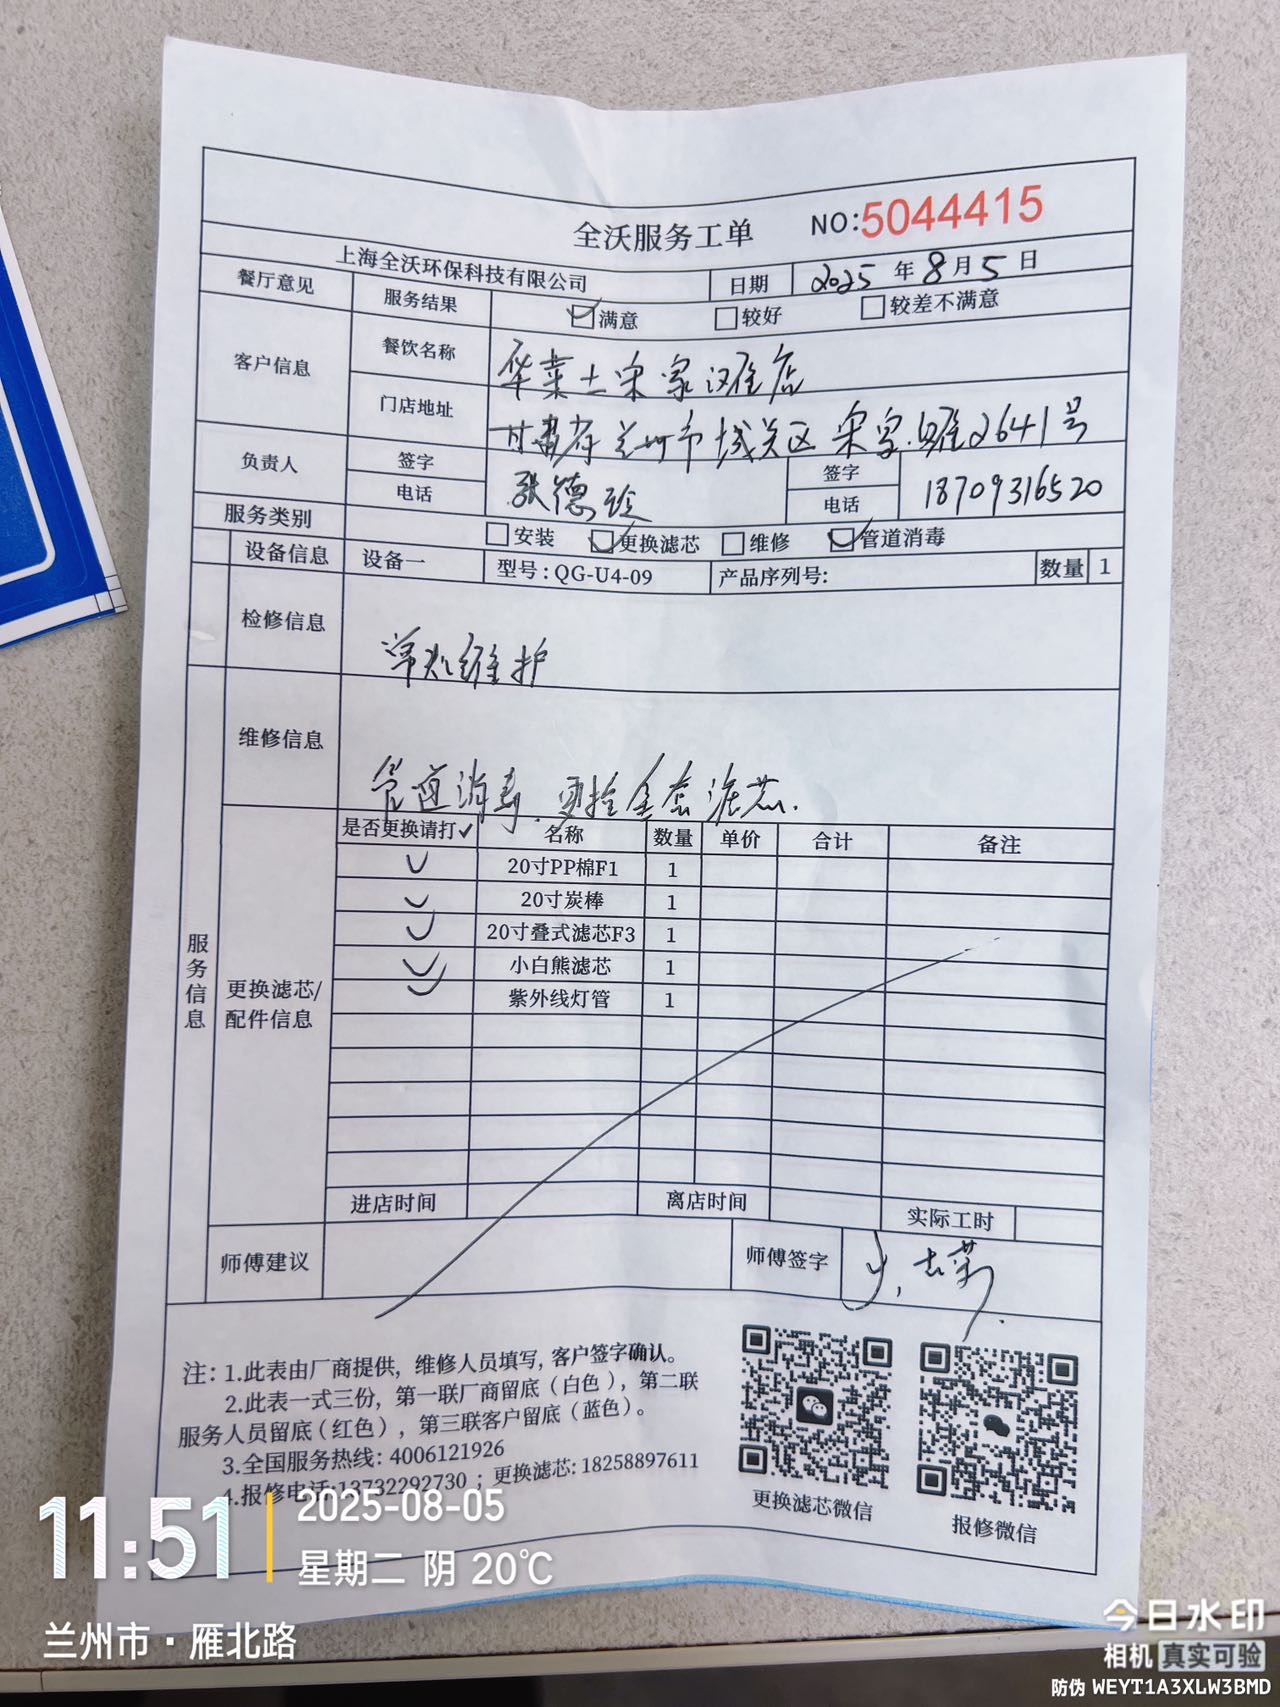 全沃服务工单 NO:5044415
上海全沃环保科技有限公司 日期 2025 年 8 月 5 日
餐厅意见 服务结果 ☑满意 □较好 □较差不满意
客户信息 餐饮名称 华莱士宋家滩店
门店地址 甘肃省兰州市城关区宋家滩2641号
负责人 签字 张德 签字
电话 电话 18709316520
服务类别 □安装 ☑更换滤芯 □维修 ☑管道消毒
设备信息 设备一 型号:QG-U4-09 产品序列号: 数量 1
检修信息 常规维护
维修信息 管道消毒.更换全套滤芯.
服务信息
更换滤芯/
配件信息
是否更换请打✓ 名称 数量 单价 合计 备注
✓ 20寸PP棉F1 1
✓ 20寸炭棒 1
✓ 20寸叠式滤芯F3 1
✓ 小白熊滤芯 1
✓ 紫外线灯管 1
进店时间 离店时间 实际工时
师傅建议 师傅签字
注: 1.此表由厂商提供, 维修人员填写, 客户签字确认。
2.此表一式三份, 第一联厂商留底(白色), 第二联
服务人员留底(红色), 第三联客户留底(蓝色)。
3.全国服务热线: 4006121926
4.报修电话:13732292730 ; 更换滤芯: 18258897611
更换滤芯微信 报修微信
11:51
2025-08-05
星期二 阴 20℃
兰州市·雁北路
今日水印
相机 真实可验
防伪 WEYT1A3XLW3BMD